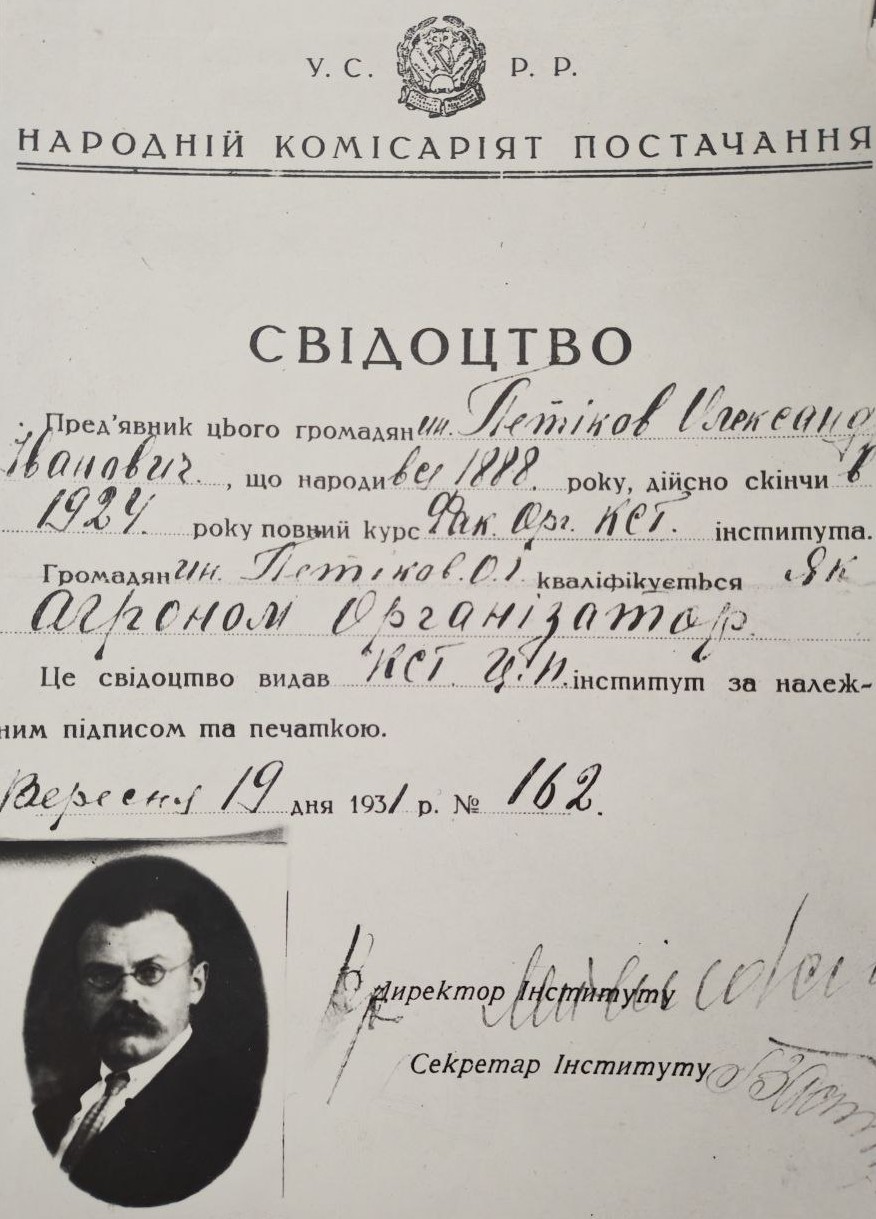 У. С. Р. Р.
НАРОДНІЙ КОМІСАРІЯТ ПОСТАЧАННЯ
СВІДОЦТВО
Пред'явник цього громадянин. Петіков Олександр
Іванович. , що народився 1888. року, дійсно скінчив
1924. року повний курс Фак. Орг. КСГ. інститута.
Громадянин. Петіков. О. І. кваліфікується Як
Агроном Організатор.
Це свідоцтво видав КСГ. інститут за належ-
ним підписом та печаткою.
Вересня 19 дня 1931 р. № 162.
Директор Інституту
Секретар Інституту